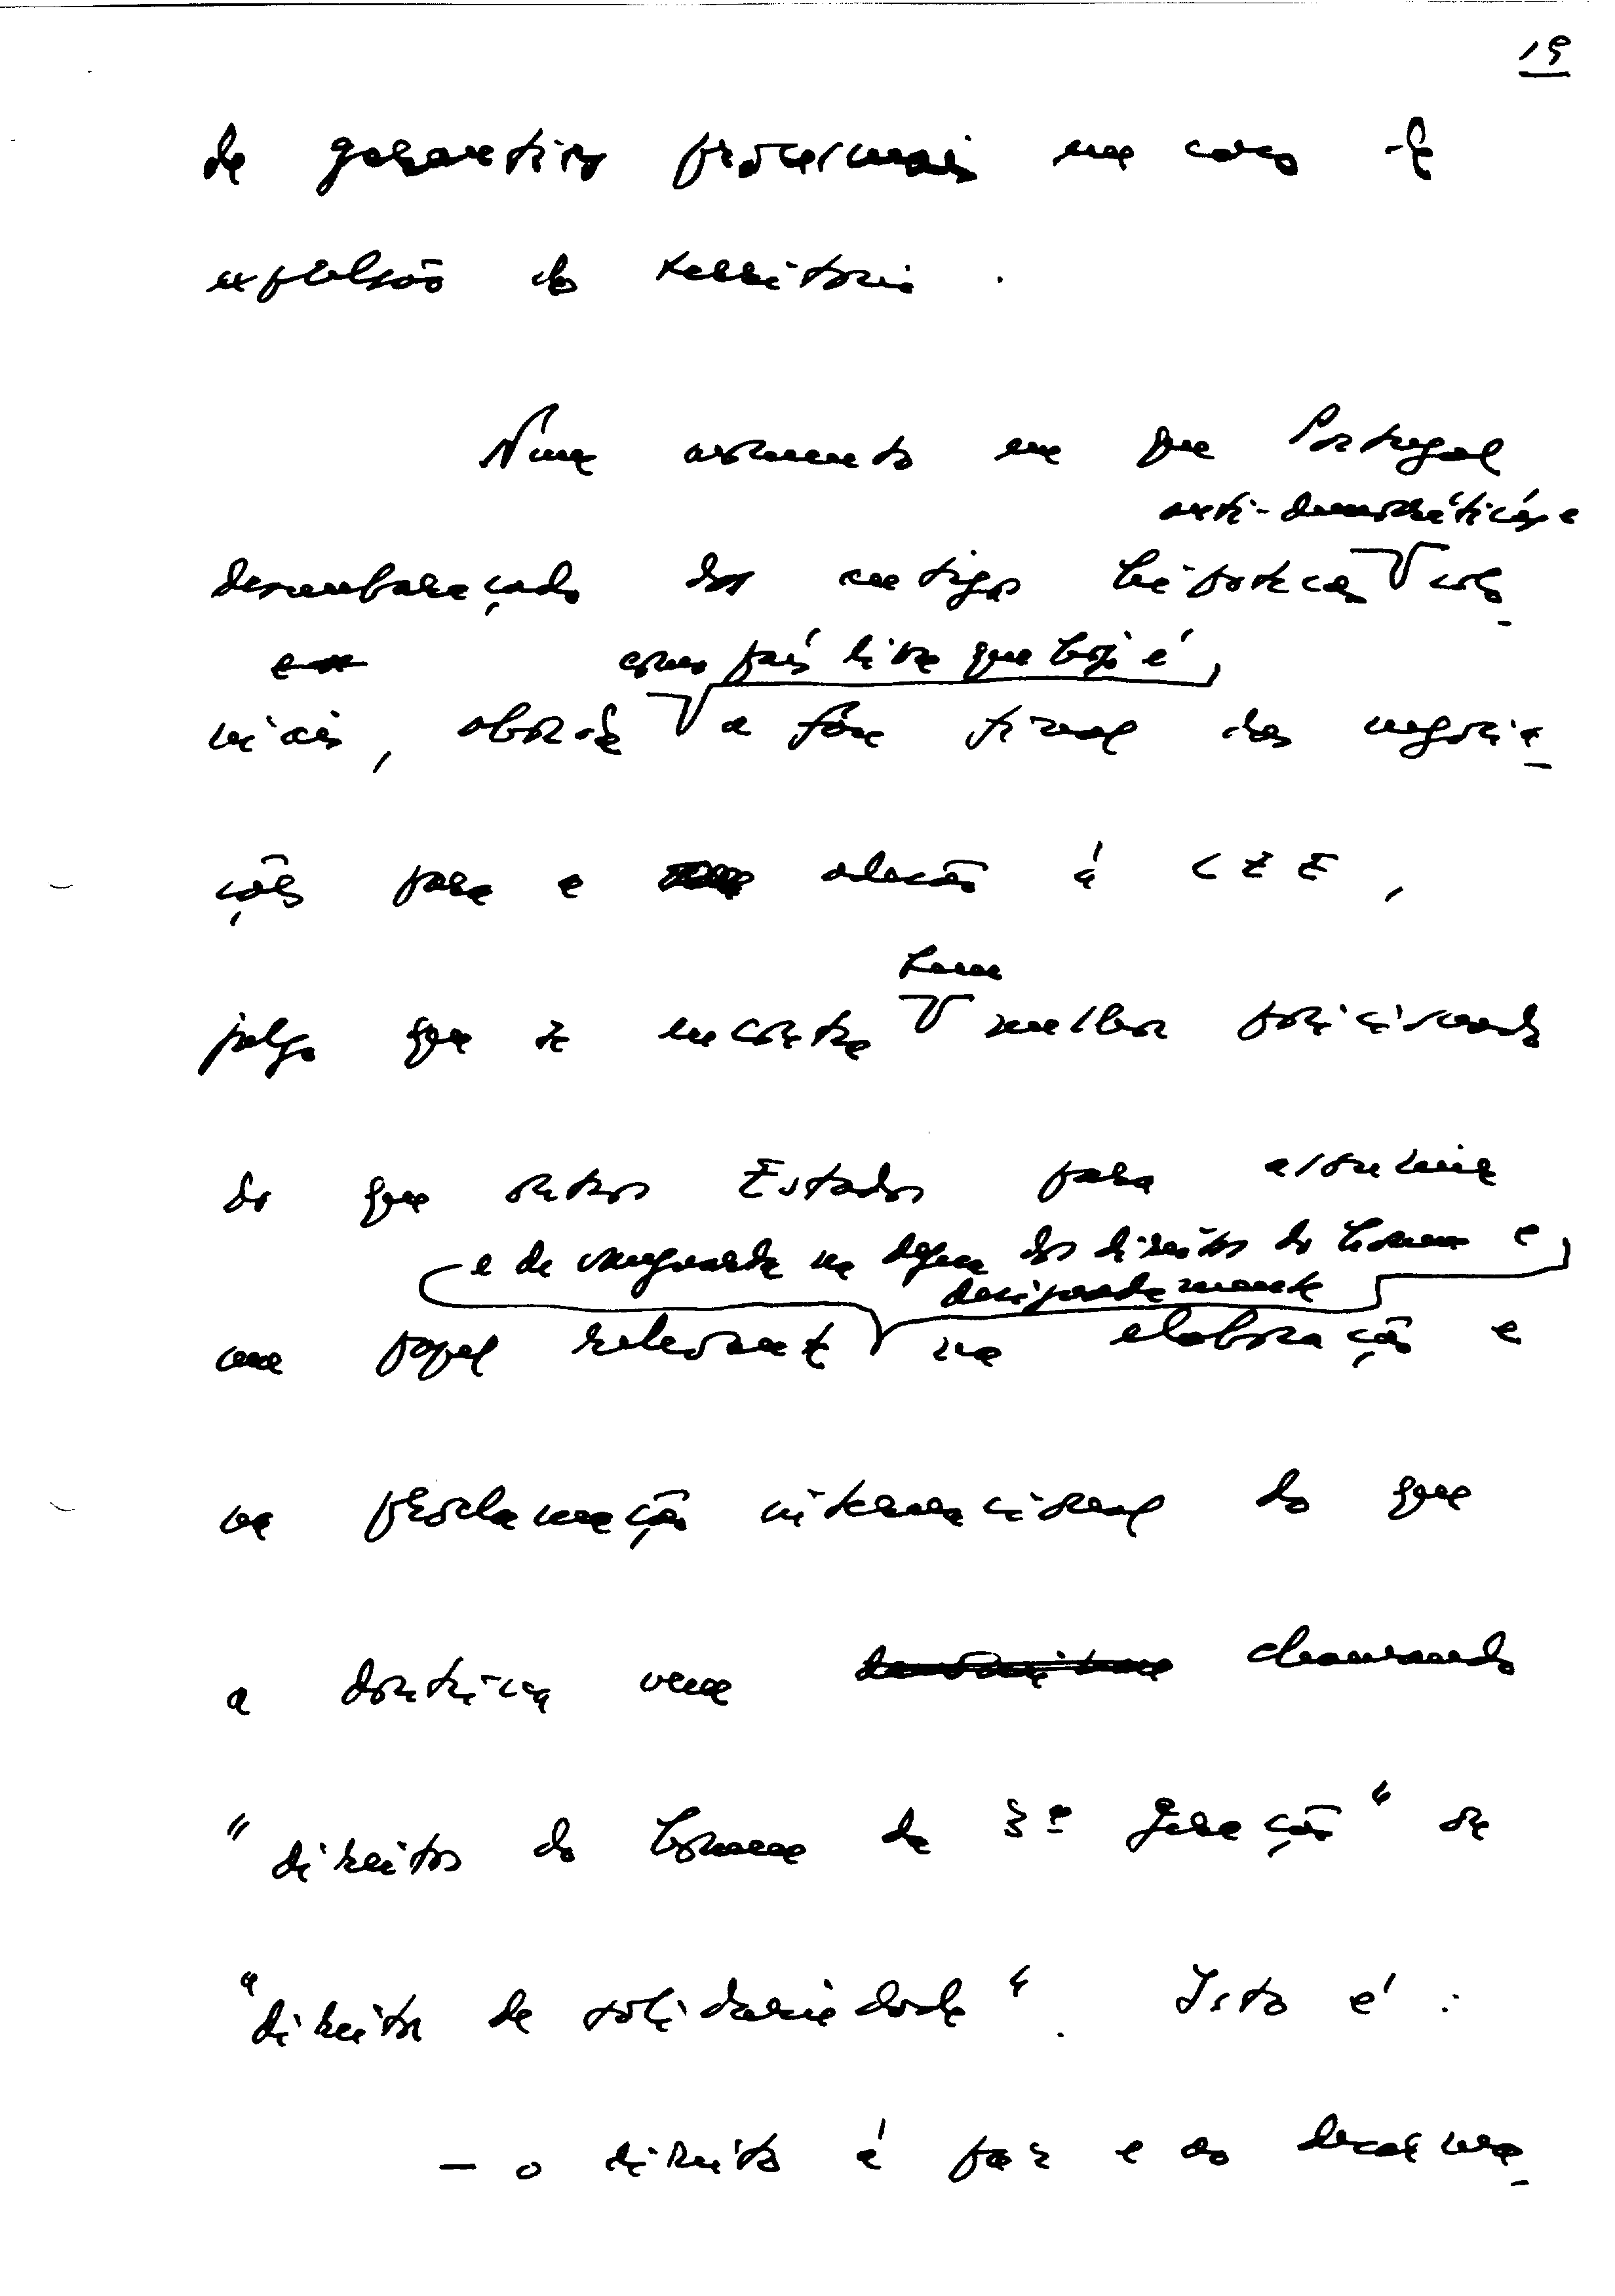 19
de garantias processuais em caso de
expulsão do território.
Num momento em que Portugal
anti-democráticas e
desembaraçado das antigas hipotecas colo-
como país livre que hoje é,
niais, aborda a fase final das negocia-
ções para a adesão à CEE,
bem
julgo que se encontra melhor posicionado
do que outros Estados para assumir
e de vanguarda na defesa dos direitos do homem e
designadamente
um papel relevante na elaboração e
na proclamação internacional do que
a doutrina vem chamando
"direitos do homem de 3ª geração" ou
"direitos de solidariedade". Isto é:
- o direito à paz e ao desarma-